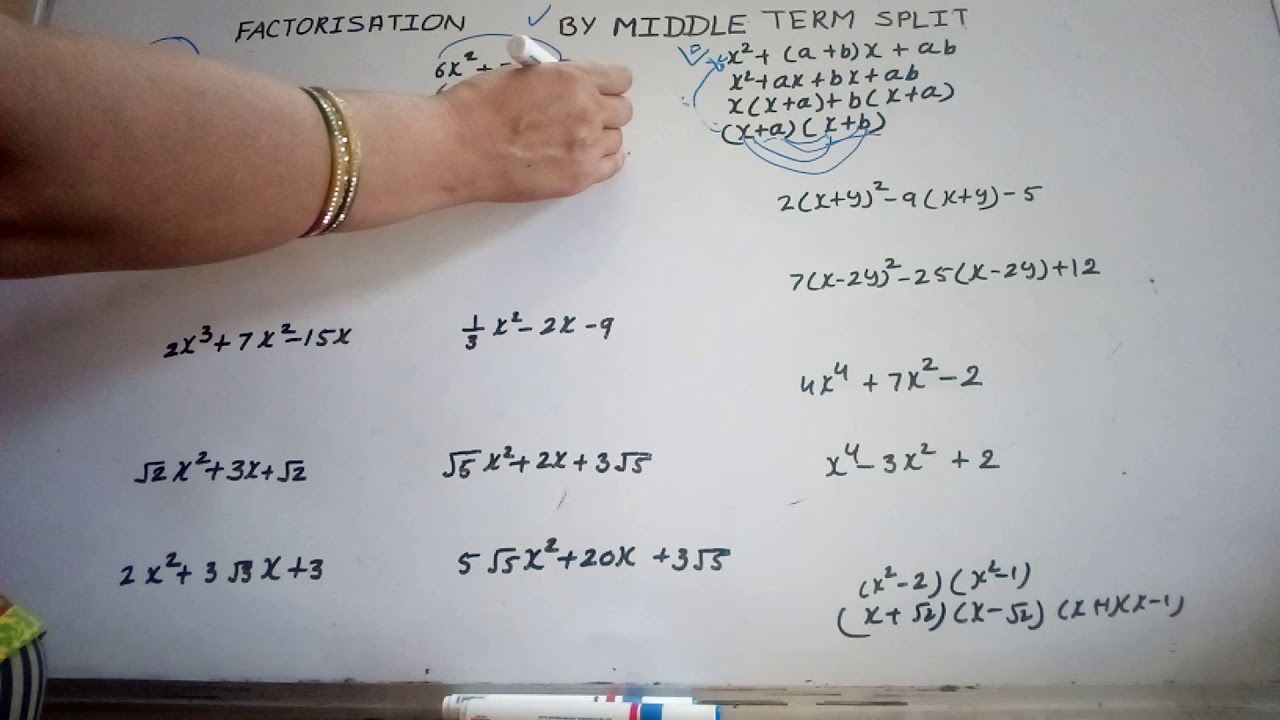 FACTORISATION ✓ BY MIDDLE TERM SPLIT
6x² +
x² + (a+b)x + ab
x² + ax + bx + ab
x(x+a) + b(x+a)
(x+a)(x+b)
2(x+y)² - 9(x+y) - 5
7(x-2y)² - 25(x-2y) + 12
2x³ + 7x² - 15x
1/3 x² - 2x - 9
4x⁴ + 7x² - 2
√2 x² + 3x + √2
√5 x² + 2x + 3√5
x⁴ - 3x² + 2
2x² + 3√3 x + 3
5√5x² + 20x + 3√5
(x²-2)(x²-1)
(x+√2)(x-√2)(x+1)(x-1)